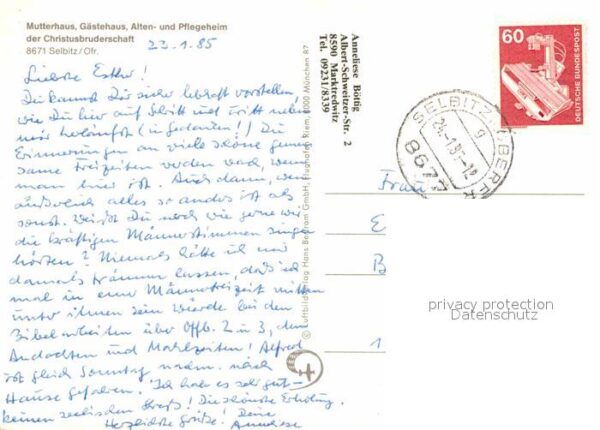 Mutterhaus, Gästehaus, Alten- und Pflegeheim
der Christusbruderschaft
8671 Selbitz/Ofr.
23.1.85
Liebste Esther!
Du kannst Dir sicher lebhaft vorstellen
wie Du hier auf Schritt und Tritt neben
mir herläufst (in Gedanken!) Die
Erinnerungen an viele schöne gemein
same Freizeiten werden wach, wenn
man hier ist. Auch dann, wenn
äußerlich alles so anders ist als
sonst. Weißt Du noch wie gerne wir
die kräftigen Männerstimmen singen
hörten? Niemals hätte ich mir
damals träumen lassen, daß ich
mal in einer Männerfreizeit mitten
unter ihnen sein würde bei den
Bibelarbeiten über Offb. 2 u 3, den
Andachten und Mahlzeiten! Alfred
ist gleich Sonntag nachm. nach
Hause gefahren. Ich hab es sehr gut-
keinen seelischen Streß! Die schönste Erholung.
Herzlichste Grüße! Deine
Anneliese
Anneliese Böttig
Albert-Schweitzer-Str. 2
8590 Marktredwitz
Tel. 09231/8339
© Luftbildverlag Hans Bertram GmbH, Flughafen Riem, 8000 München 87
60
DEUTSCHE BUNDESPOST
SELBITZ, OBERFR
8677
Frau
E
B
1
privacy protection
Datenschutz